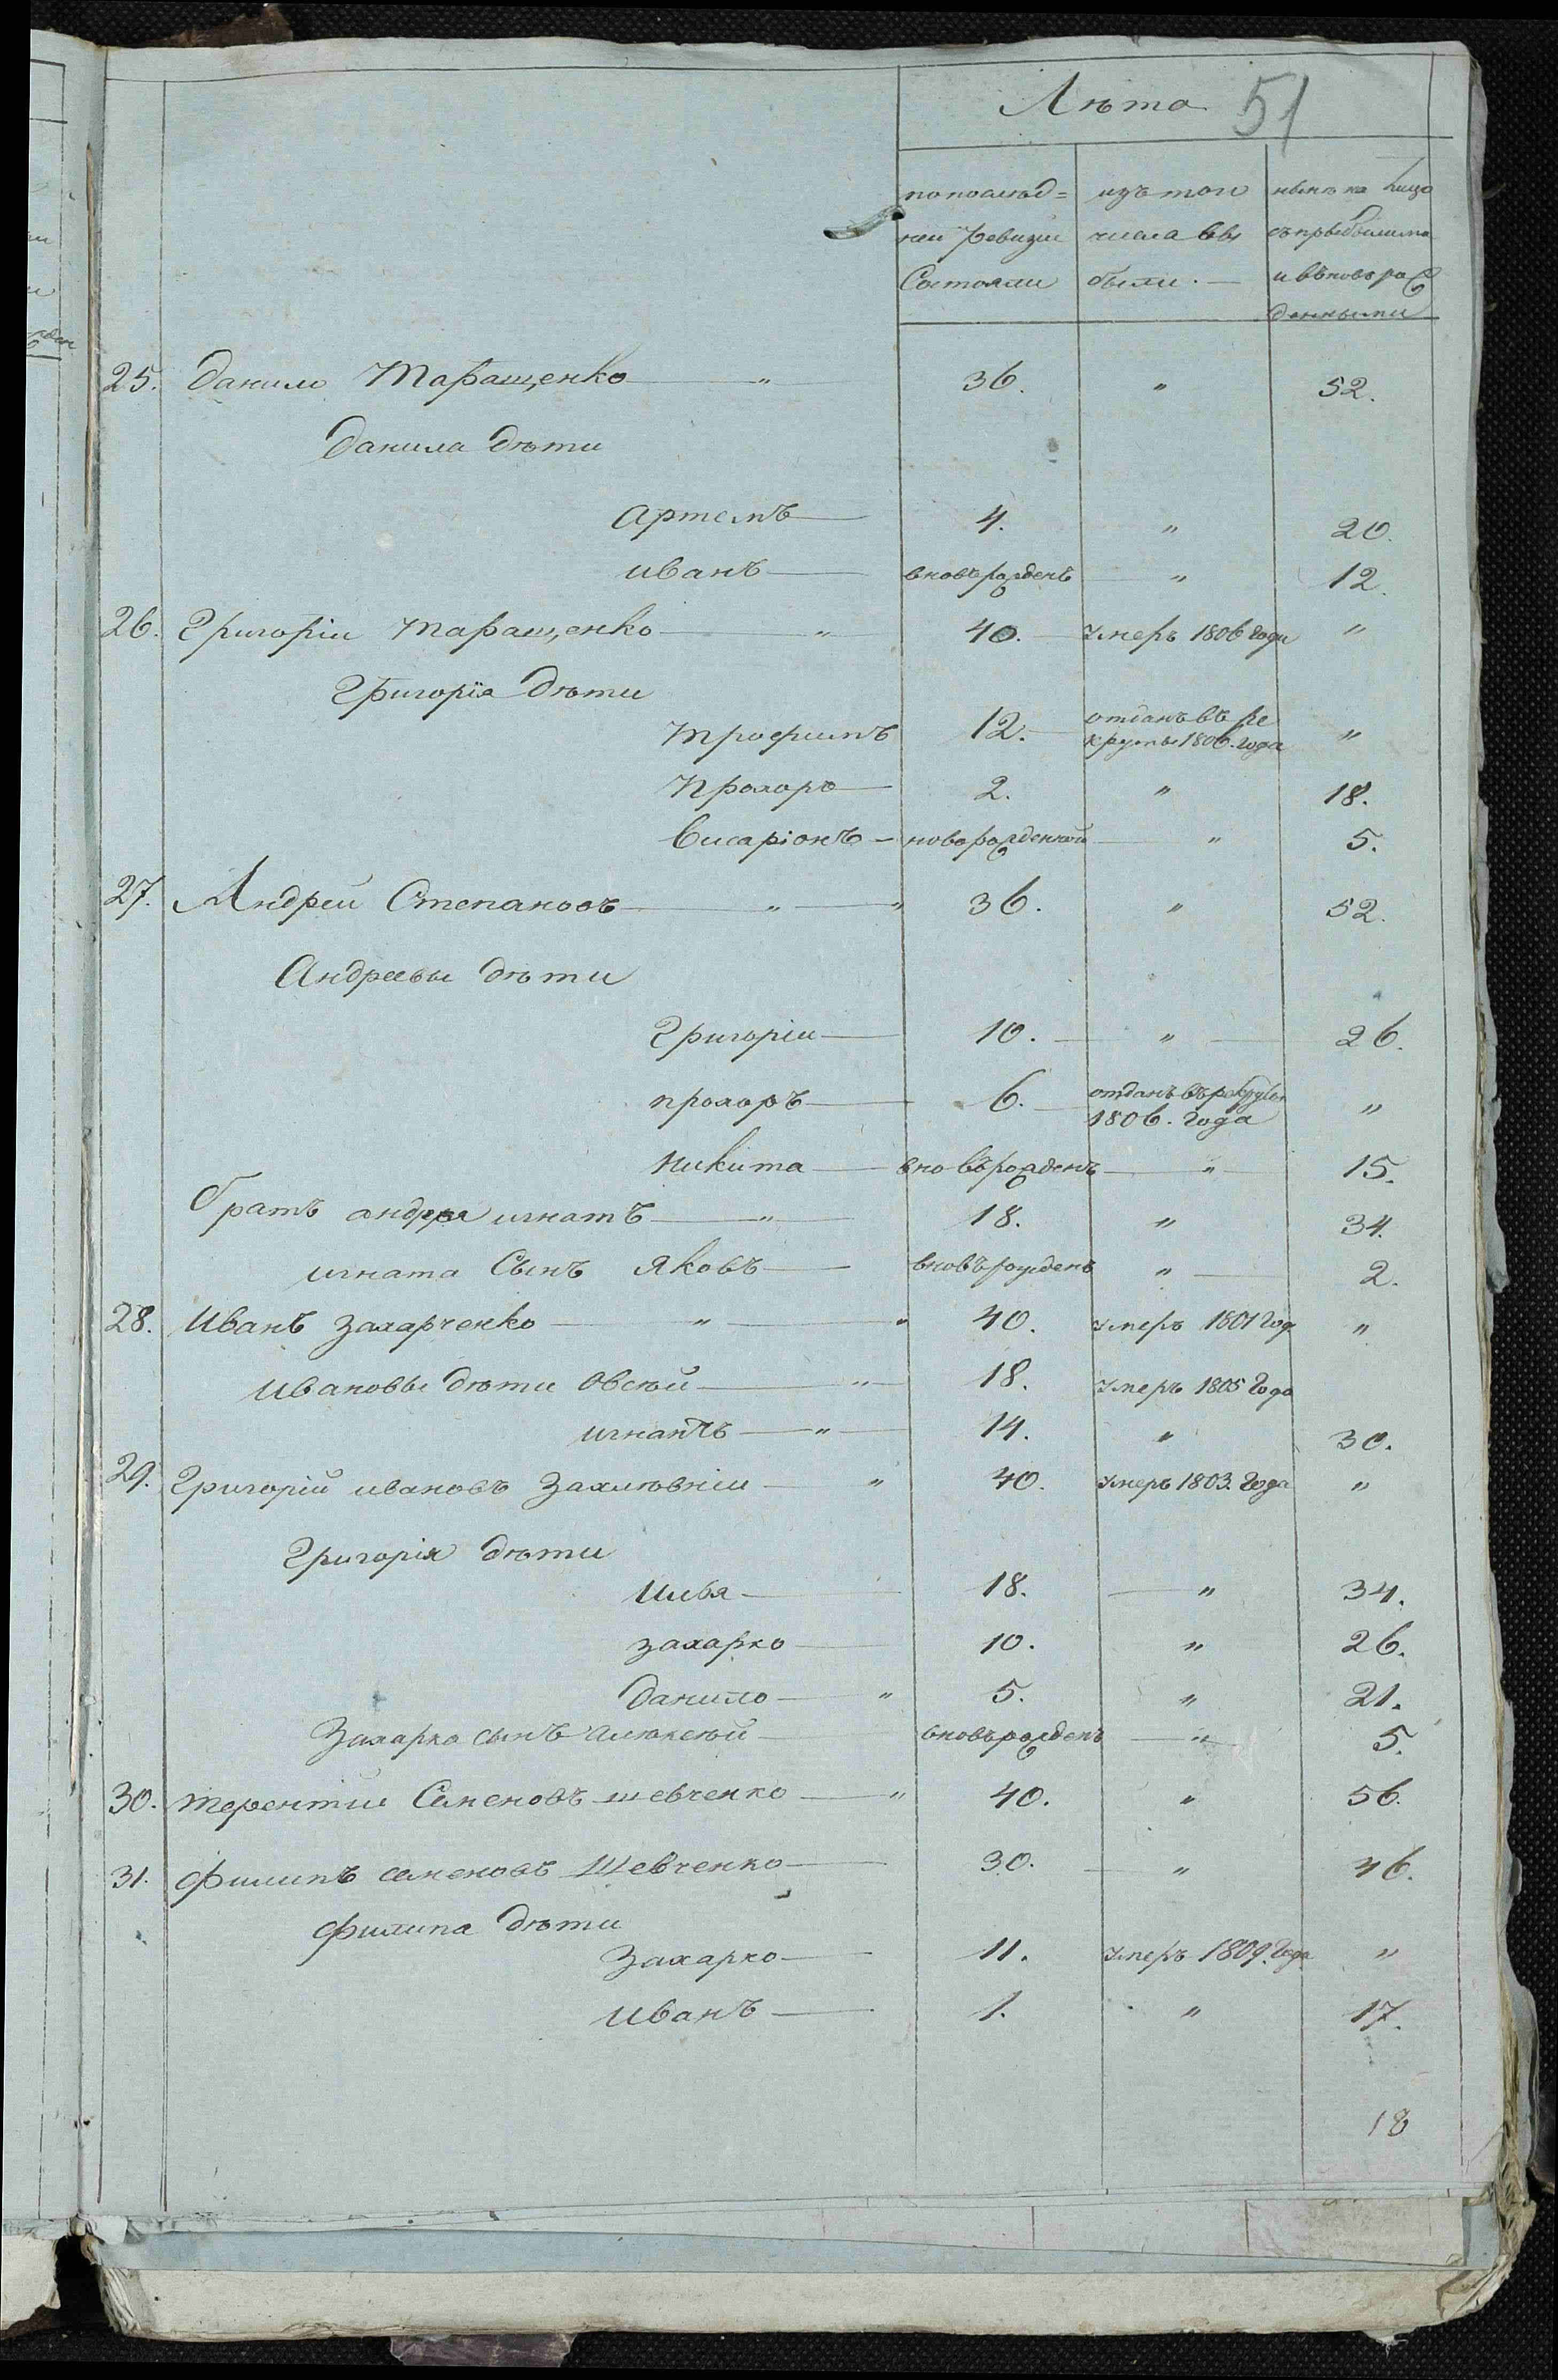 Лѣта 51
попослѣд= изъ того нынѣ на лицо
ней ревизіи числа вы съ прибылыми
Состояли были. и вновь рож
денными
25. Данило Таращенко „ 36. „ 52.
Данила дѣти
Артемъ 4. „ 20.
иванъ вновь рожденъ „ 12.
26. Григоріи Таращенко „ 40. умеръ 1806 года „
Григорія дѣти
Трофимъ 12. отданъ въ ре
круты 1806. года „
Прохоръ 2. „ 18.
Висаріонъ новорожденной „ 5.
27. Андрей Степановъ „ „ 36. „ 52.
Андреевы дѣти
Григоріи 10. „ 26.
прохоръ 6. отданъ въ рекруты
1806. года „
Никита вновь рожденъ „ 15.
братъ андрея игнатъ „ 18. „ 34.
игната Сынъ Яковъ вновь рожденъ „ 2.
28. Иванъ Захарченко „ „ 40. умеръ 1801 год „
Ивановы дѣти Овсѣй „ 18. умеръ 1805 года
игнатъ „ 14. „ 30.
29. Григорій ивановъ „ 40. умеръ 1803. года „
Григорія дѣти
Илья 18. „ 34.
захарко 10. „ 26.
данило „ 5. „ 21.
Захарка сынъ алѣксѣй вновь рожденъ „ 5.
30. терентій Семеновъ шевченко „ 40. „ 56.
31. Филипъ семеновъ Шевченко 30. „ 46.
Филипа дѣти
Захарко 11. умеръ 1809. года „
Иванъ 1. „ 17.
18